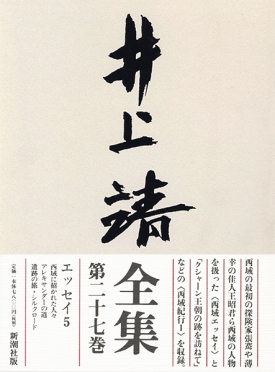 井上靖
全集
第二十七巻
西域の最初の探険家張騫や薄
幸の佳人王昭君ら西域の人物
を扱った〈西域エッセイ〉と
「クシャーン王朝の跡を訪ねて」
などの〈西域紀行Ⅰ〉を収録。
エッセイ5
西域に招かれた人々
アレキサンダーの道
遺跡の旅・シルクロード
新潮社版